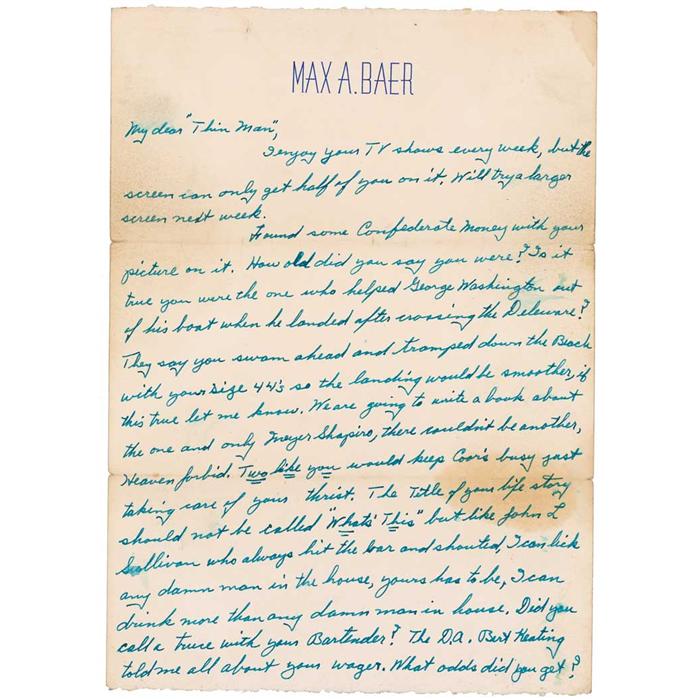 MAX A. BAER
My dear "Thin Man",
I enjoy your TV shows every week, but the
screen can only get half of you on it. Will try a larger
screen next week.
Found some Confederate Money with your
picture on it. How old did you say you were? Is it
true you were the one who helped George Washington out
of his boat when he landed after crossing the Deleware?
They say you swam ahead and tramped down the Beach
with your size 44's so the landing would be smoother, if
this true let me know. We are going to write a book about
the one and only Meyer Shapiro, there couldn't be another,
Heaven forbid. Two like you would keep Coor's busy just
taking care of your thrist. The Title of your life story
should not be called "What's This" but like John L
Sullivan who always hit the bar and shouted, I can lick
any damn man in the house, yours has to be, I can
drink more than any damn man in house. Did you
call a truce with your Bartender? The D.A. Bert Keating
told me all about your wager. What odds did you get?